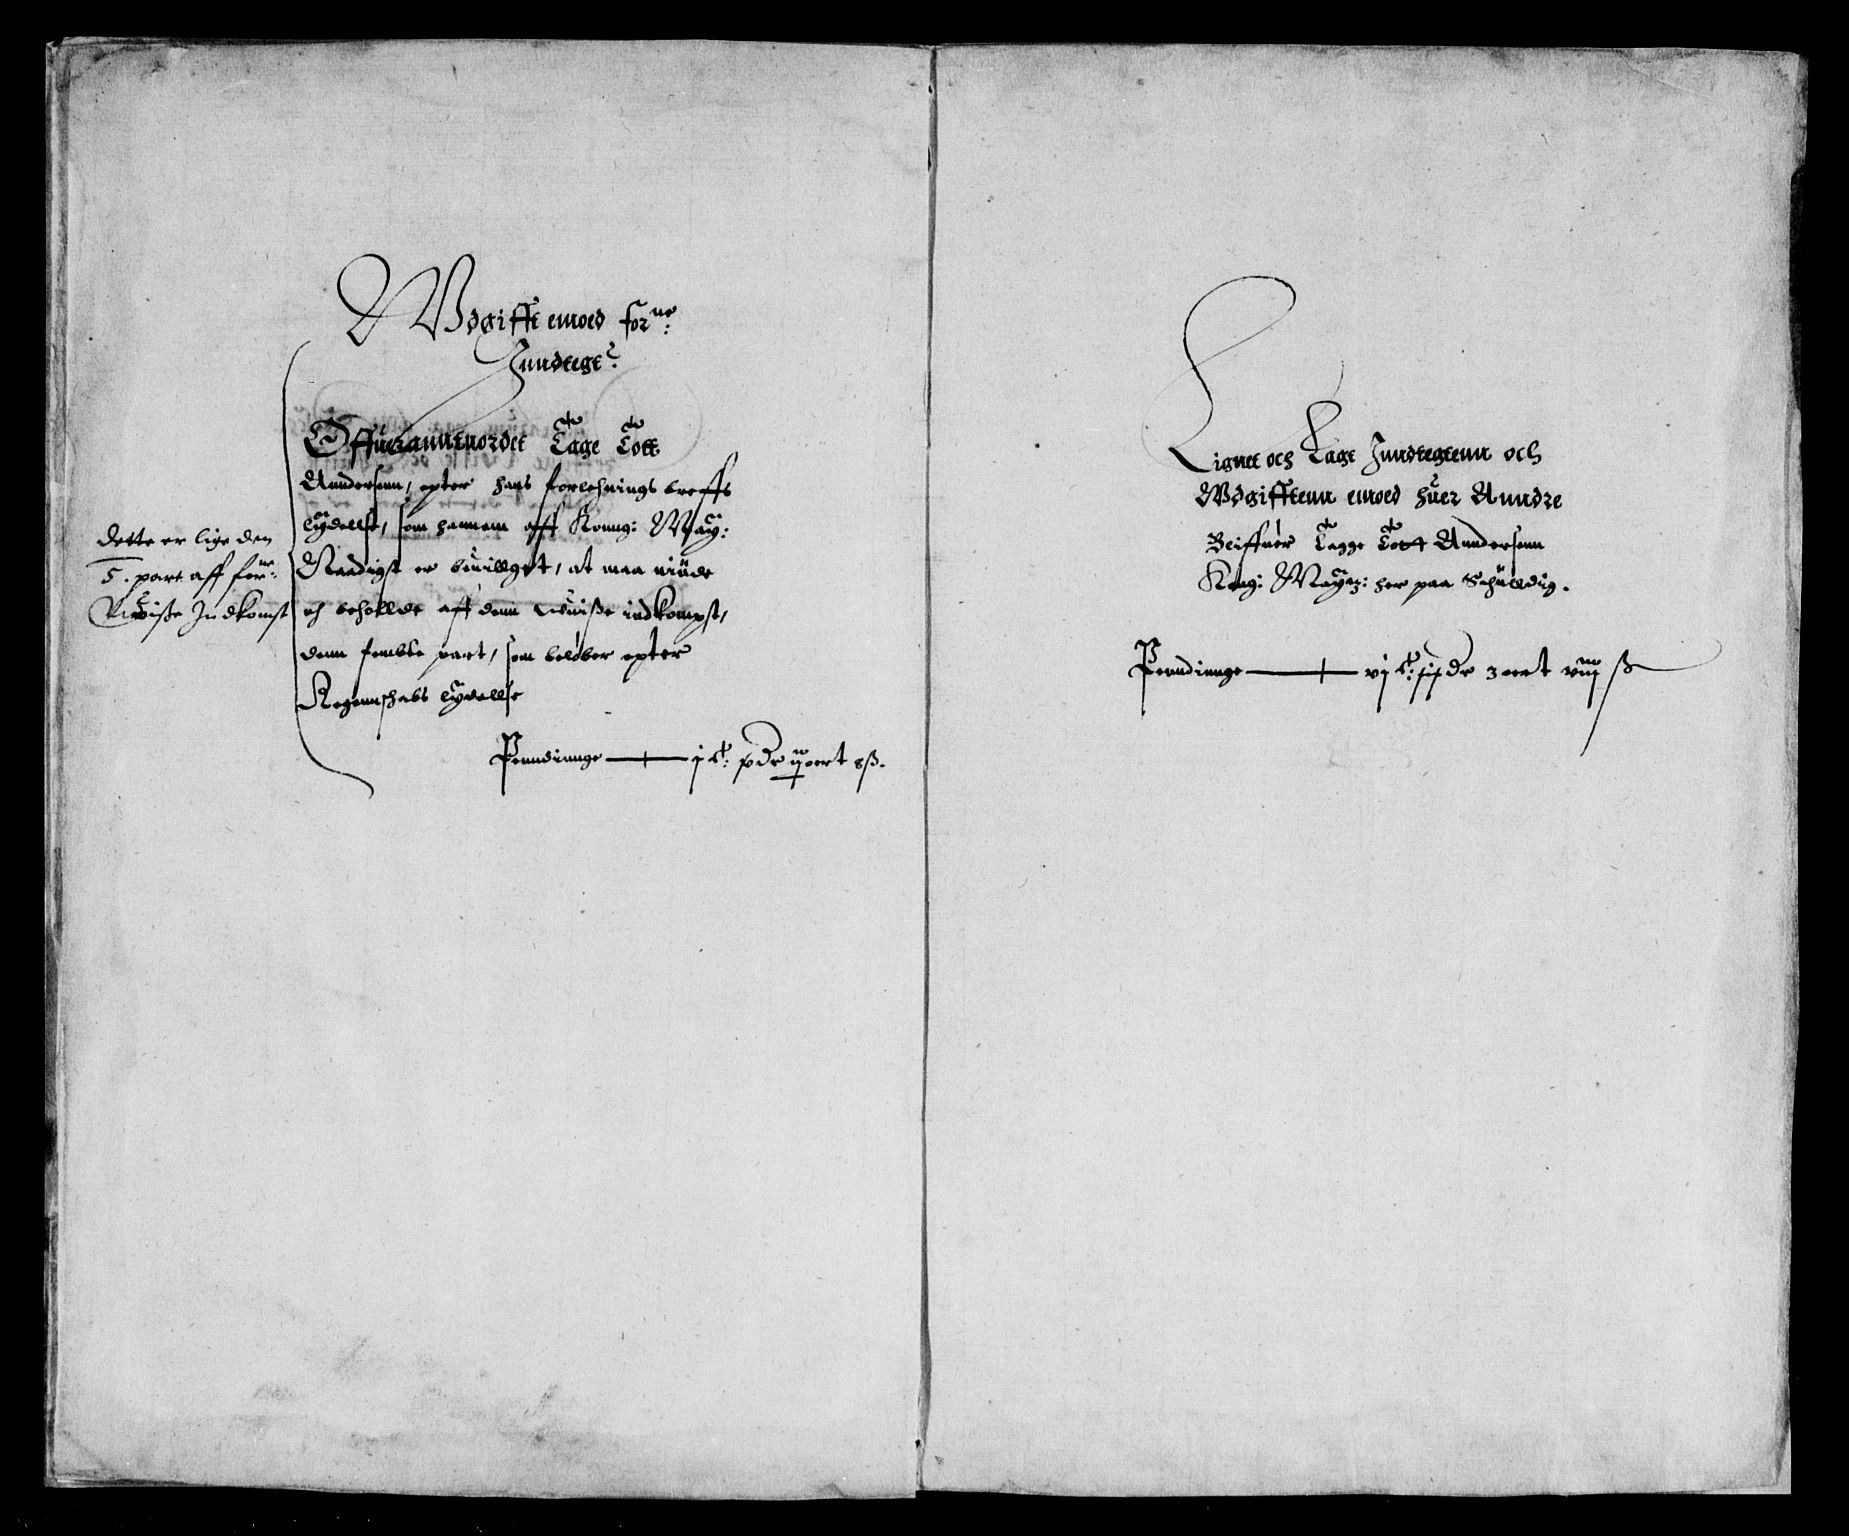 Wdgifft emod for:ne
Inndtegt:
Offueranntuordet Tage Tott
Anndersenn, epter hans forlehnings breffs
lydellse, som hannem aff Konng: May:
Naadigst er beuillget, at maa niude
och beholde aff denn uuisse indkompst,
denn fembte part, som beløber epter
Regennskabs lydellse
Penndinnge — j C: x dr ij oert 8 ß.
Dette er lige den
5. part aff for:ne
Vuisse Indkomst
Lignet och Lagt Inndtegtenn och
Wdgifftenn emod huer Anndre
Bliffuer Tagge Tott Andersenn
Kong: Maytz: her paa Schuldig.
Penndinnge — vj C: dr 3 oert viij ß